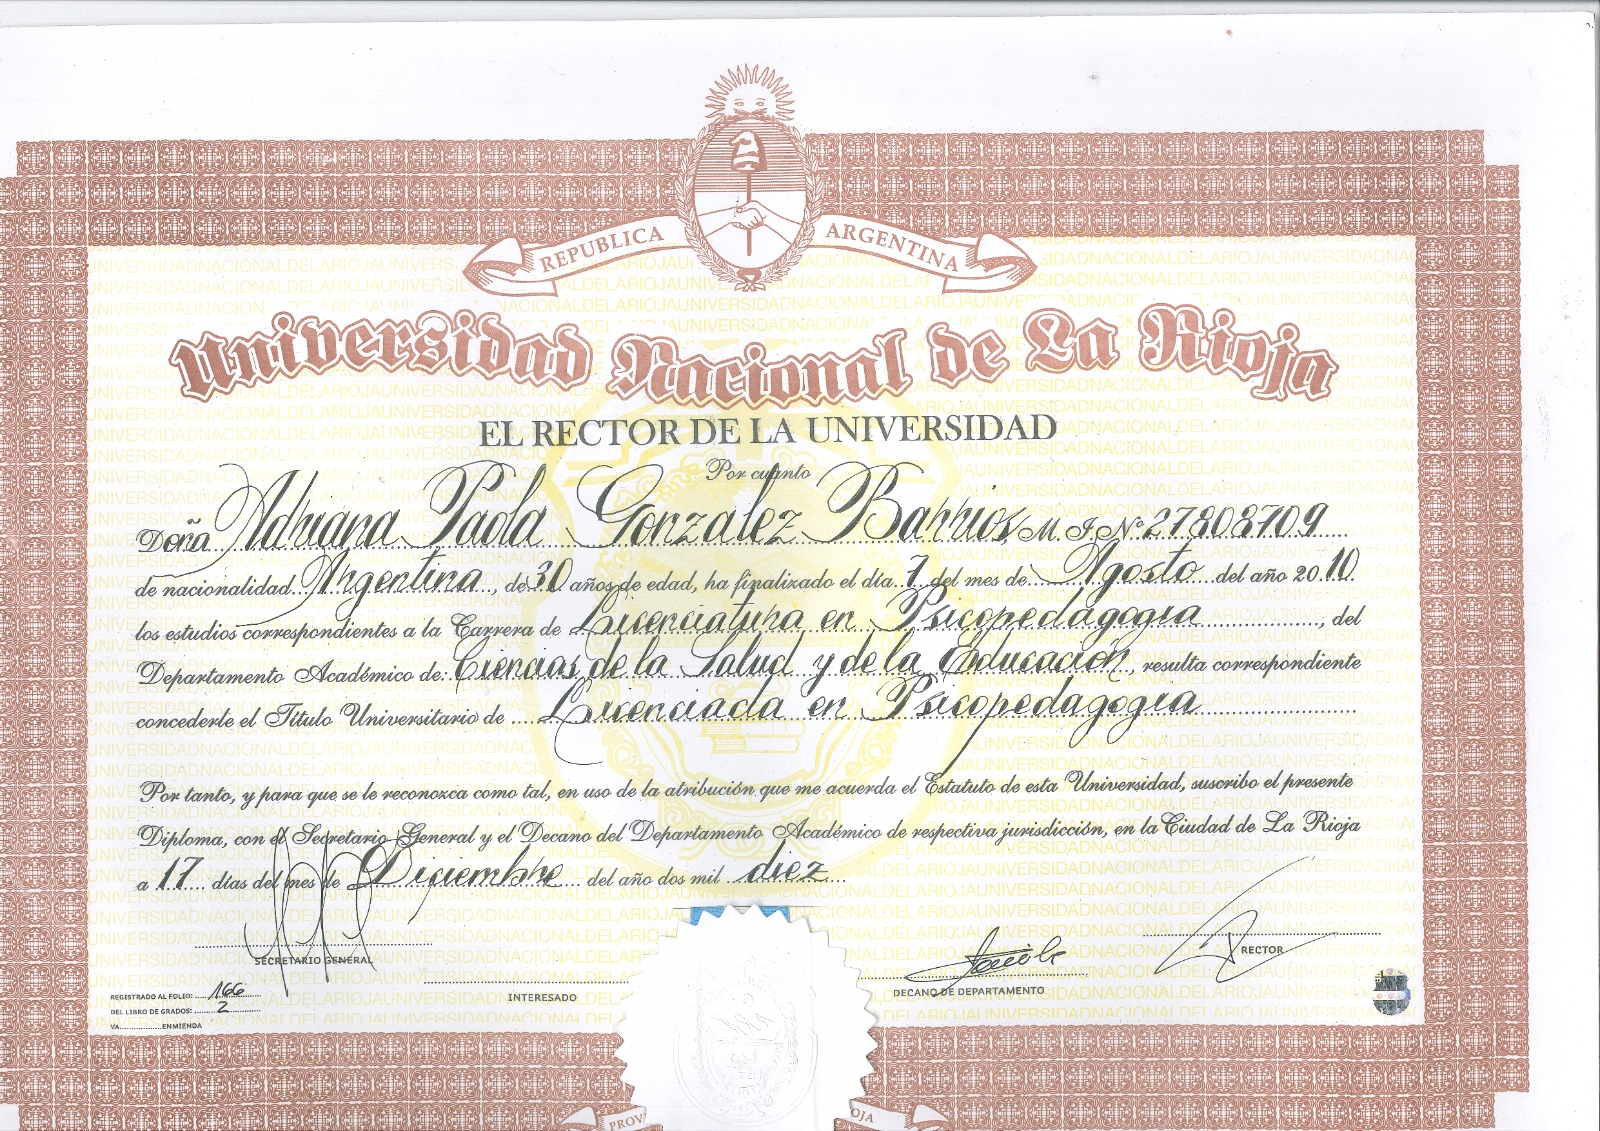 REPUBLICA ARGENTINA
Universidad Nacional de La Rioja
EL RECTOR DE LA UNIVERSIDAD
Por cuanto
Doña Adriana Paola Gonzalez Barrios M. I. Nº 27808709
de nacionalidad Argentina, de 30 años de edad, ha finalizado el día 7 del mes de Agosto del año 2010
los estudios correspondientes a la Carrera de Licenciatura en Psicopedagogia, del
Departamento Académico de: Ciencias de la Salud y de la Educación, resulta correspondiente
concederle el Título Universitario de Licenciada en Psicopedagogia
Por tanto, y para que se le reconozca como tal, en uso de la atribución que me acuerda el Estatuto de esta Universidad, suscribo el presente
Diploma, con el Secretario General y el Decano del Departamento Académico de respectiva jurisdicción, en la Ciudad de La Rioja
a 17 días del mes de Diciembre del año dos mil diez
SECRETARIO GENERAL
INTERESADO
DECANO DE DEPARTAMENTO
RECTOR
REGISTRADO AL FOLIO: 166
DEL LIBRO DE GRADOS: 2
VA ENMIENDA
PROV
OJA